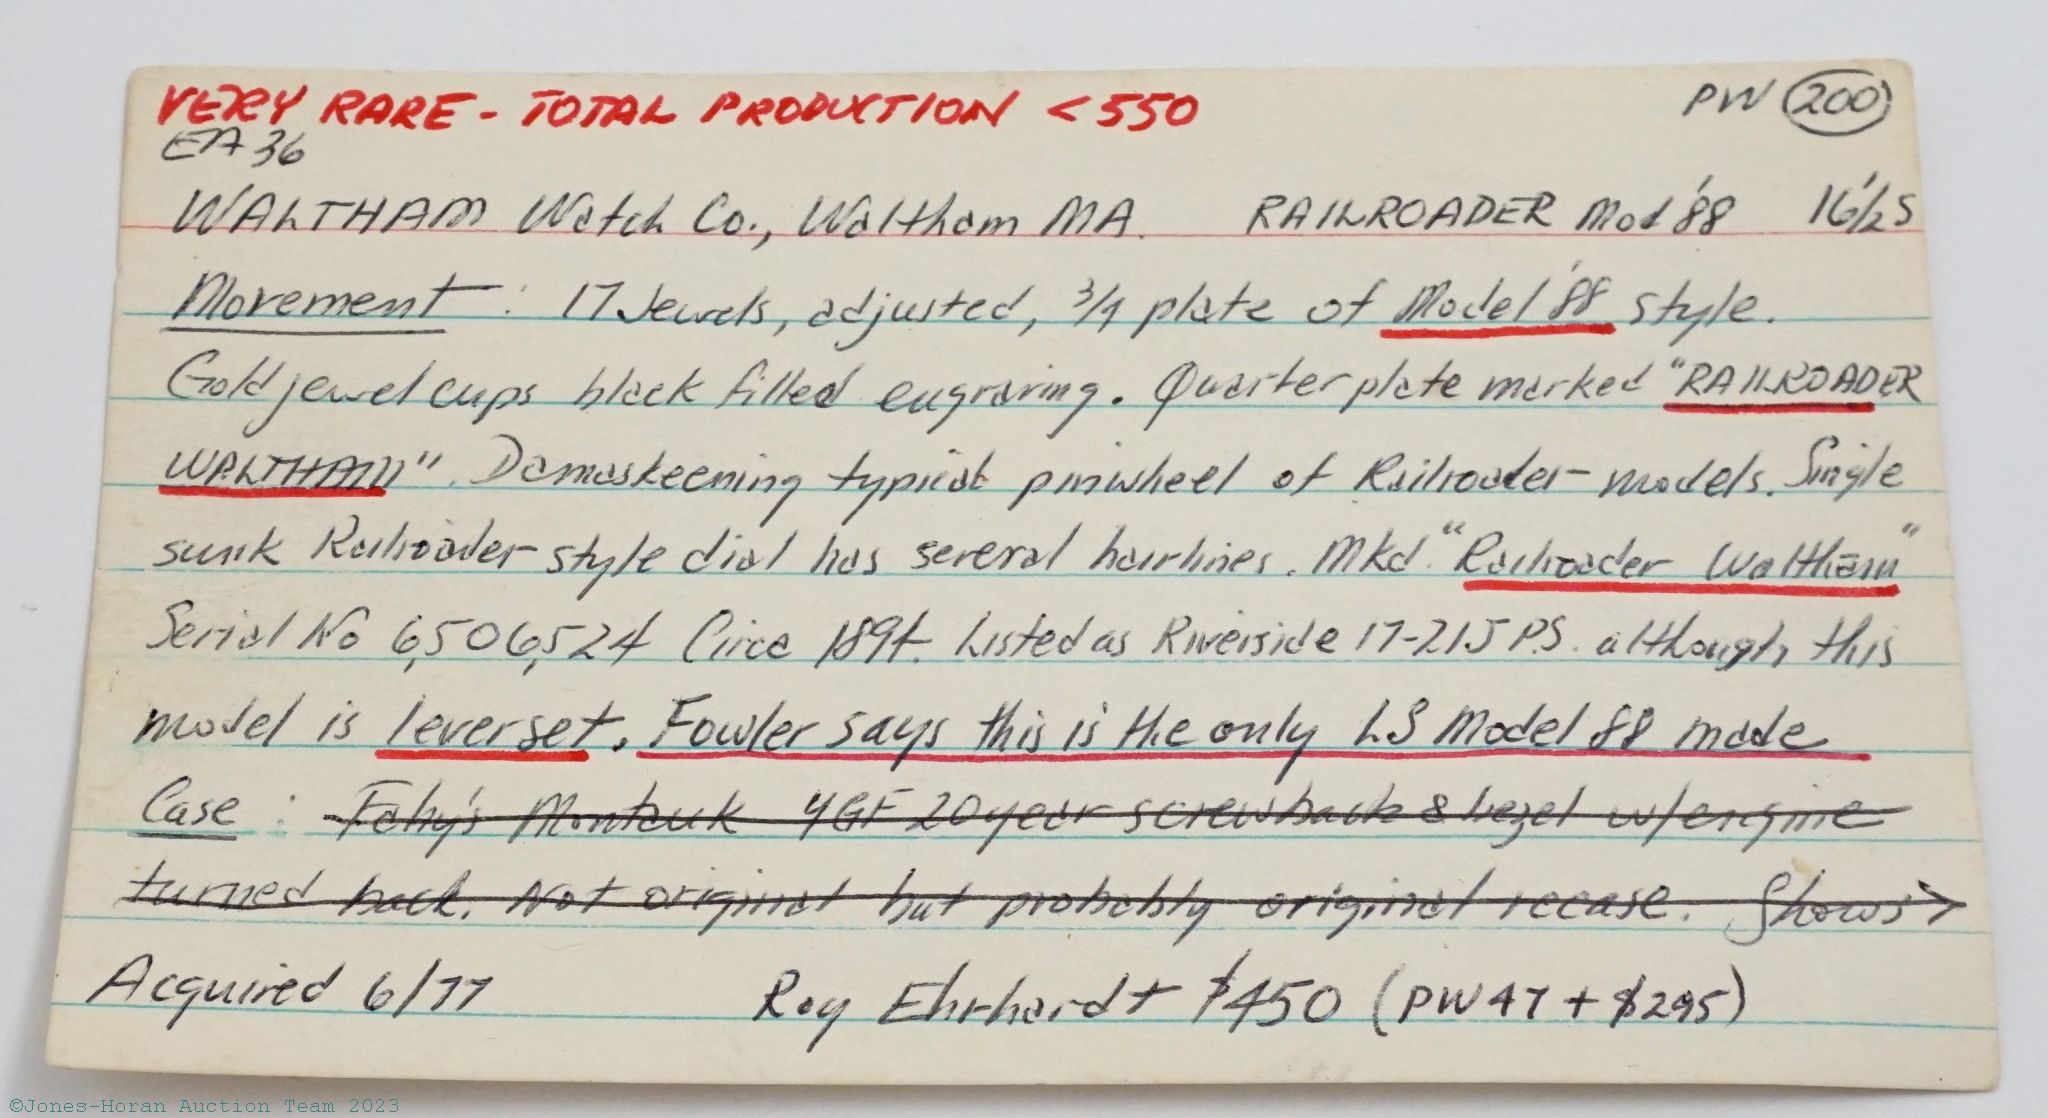 VERY RARE - TOTAL PRODUCTION < 550
PW 200
EA 36
WALTHAM Watch Co., Waltham MA. RAILROADER Mod '88 16/2S
Movement : 17 Jewels, adjusted, 3/4 plate of Model '88 style.
Gold jewel cups black filled engraving. Quarter plate marked "RAILROADER
WALTHAM". Damaskeening typical pinwheel of Railroader models. Single
sunk Railroader style dial has several hairlines. Mkd "Railroader Waltham"
Serial No 6,506,524 Circa 1894. Listed as Riverside 17-21J P.S. although this
model is leverset. Fowler says this is the only LS Model 88 made
Case : Fahy's Montauk YGF 20 year screw back & bezel w/engine
turned back. Not original but probably original recase. Shows →
Acquired 6/77 Roy Ehrhardt $450 (PW 47 + $295)
©Jones-Horan Auction Team 2023